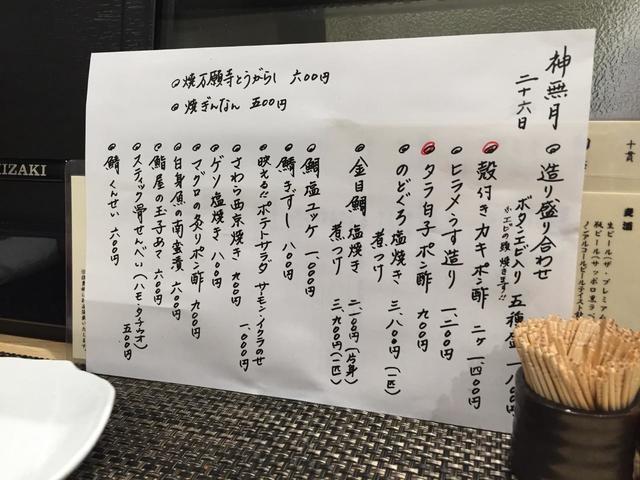 神無月
二十六日
造り盛り合わせ
ボタンエビ入り 五種盛 一、八〇〇円
※エビの頭焼きます!!
殻付きカキポン酢 二ヶ 一、四〇〇円
ヒラメうす造り 一、二〇〇円
タラ白子ポン酢 九〇〇円
のどぐろ塩焼き
煮つけ 三、八〇〇円(一匹)
金目鯛 塩焼き
煮つけ 二、二〇〇円(片身)
三、九〇〇円(一匹)
鯛塩ユッケ 一、〇〇〇円
鯖きずし 八〇〇円
映えるた゛ポテトサラダ サーモン・イクラのせ 一、〇〇〇円
さわら西京焼き 九〇〇円
ゲソ塩焼き 八〇〇円
マグロの炙りポン酢 九〇〇円
白身魚の南蛮漬 六〇〇円
鮨屋の玉子あて 六〇〇円
スティック骨せんべい(ハモ・タチウオ) 五〇〇円
鯖くんせい 六〇〇円
焼万願寺とうがらし 六〇〇円
焼ぎんなん 五〇〇円
十貫
麦酒
生ビール(ザ・プレミア
瓶ビール(サッポロ黒ラ
ノンアルコールビールテイスト飲
IZAKI